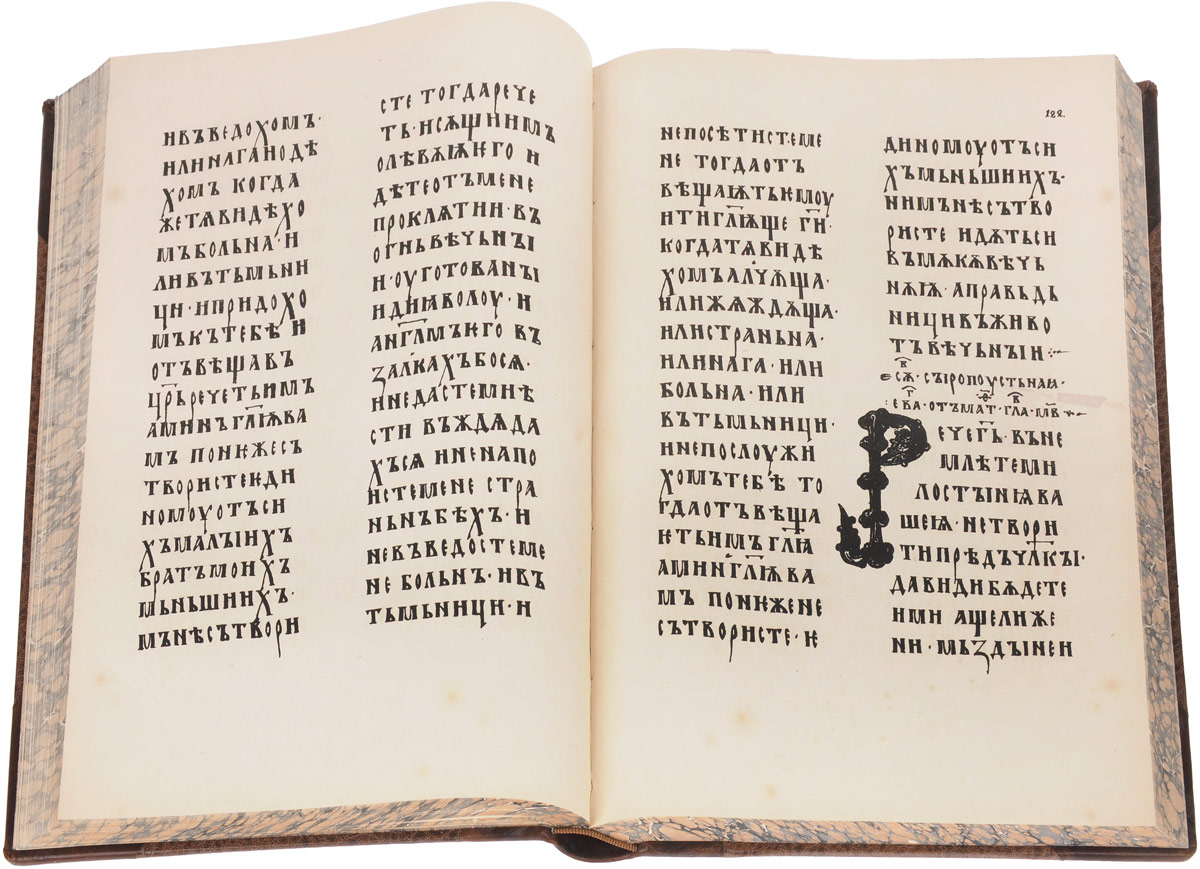 ивъведохомъ·
илинаганодѣ
хомъ когда
жетѧвидѣхо
мъбольна· и
ливътьмьни
ци· ипридохо
мъкътебѣ и
отъвѣщавъ
ц҃рьречетьимъ
аминъгл҃ѭва
мъ понѥжес
твористеѥди
номоуотъси
хъмалыихъ
братъмоихъ
мьньшиихъ·
мънѣсътвори
сте тогдарече
ть·исѫщиимъ
олѣвѫѭѥго и
дѣтеотъмене
проклѧтии· въ
огньвѣчьныи
и· оуготованыи
идиꙗволоу· и
анг҃лмъѥго въ
залкахъбосѧ·
инедастемнѣ
сти въждѧда
хъсѧ иненапо
истемене стра
ньнъбѣхъ· и
невъведостеме
не больнъ· ивъ
тьмьници· и
122.
непосѣтистеме
не тогдаотъ
вѣщаѭтьѥмоу
итигл҃ѭще г҃и·
когдатѧвидѣ
хомъалчѫща·
илижѧждѫща·
илистраньна·
илинага· или
больна· или
вътьмьници·
инепослоужи
хомътебѣ то
гдаотъвѣща
ѥтьимъгл҃ѧ
аминъгл҃ѭва
мъ понѥжене
сътвористе· ѥ
диномоуотъси
хъмьньшиихъ·
нимънѣсътво
ристе идѫтьси
въмѫкѫвѣчь
нѫѭ· аправьдь
ницивъживо
тъвѣчьныи·
ечег҃ь· въне
млѣтеми
лостынѧва
шеѧ· нетвори
типрѣдъчл҃кы·
давидибѫдете
ими ащелиже
ни· мьздыиней